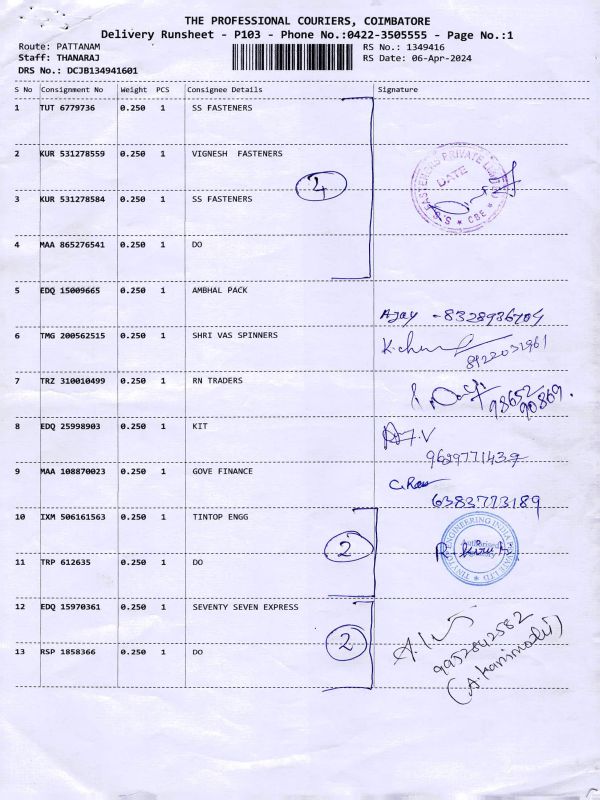 THE PROFESSIONAL COURIERS, COIMBATORE
Delivery Runsheet - P103 - Phone No.:0422-3505555 - Page No.:1
Route: PATTANAM RS No.: 1349416
Staff: THANARAJ RS Date: 06-Apr-2024
DRS No.: DCJB134941601
S No Consignment No Weight PCS Consignee Details Signature
1 TUT 6779736 0.250 1 SS FASTENERS
2 KUR 531278559 0.250 1 VIGNESH FASTENERS
DATE
4
3 KUR 531278584 0.250 1 SS FASTENERS
CBE
4 MAA 865276541 0.250 1 DO
5 EDQ 15009665 0.250 1 AMBHAL PACK
Ajay - 8328936704
6 TMG 200562515 0.250 1 SHRI VAS SPINNERS
8122032961
7 TRZ 310010499 0.250 1 RN TRADERS
98652
90869.
8 EDQ 25998903 0.250 1 KIT
9629771437
9 MAA 108870023 0.250 1 GOVE FINANCE
6383773189
10 IXM 506161563 0.250 1 TINTOP ENGG
2
11 TRP 612635 0.250 1 DO
12 EDQ 15970361 0.250 1 SEVENTY SEVEN EXPRESS
2
9952842582
13 RSP 1858366 0.250 1 DO